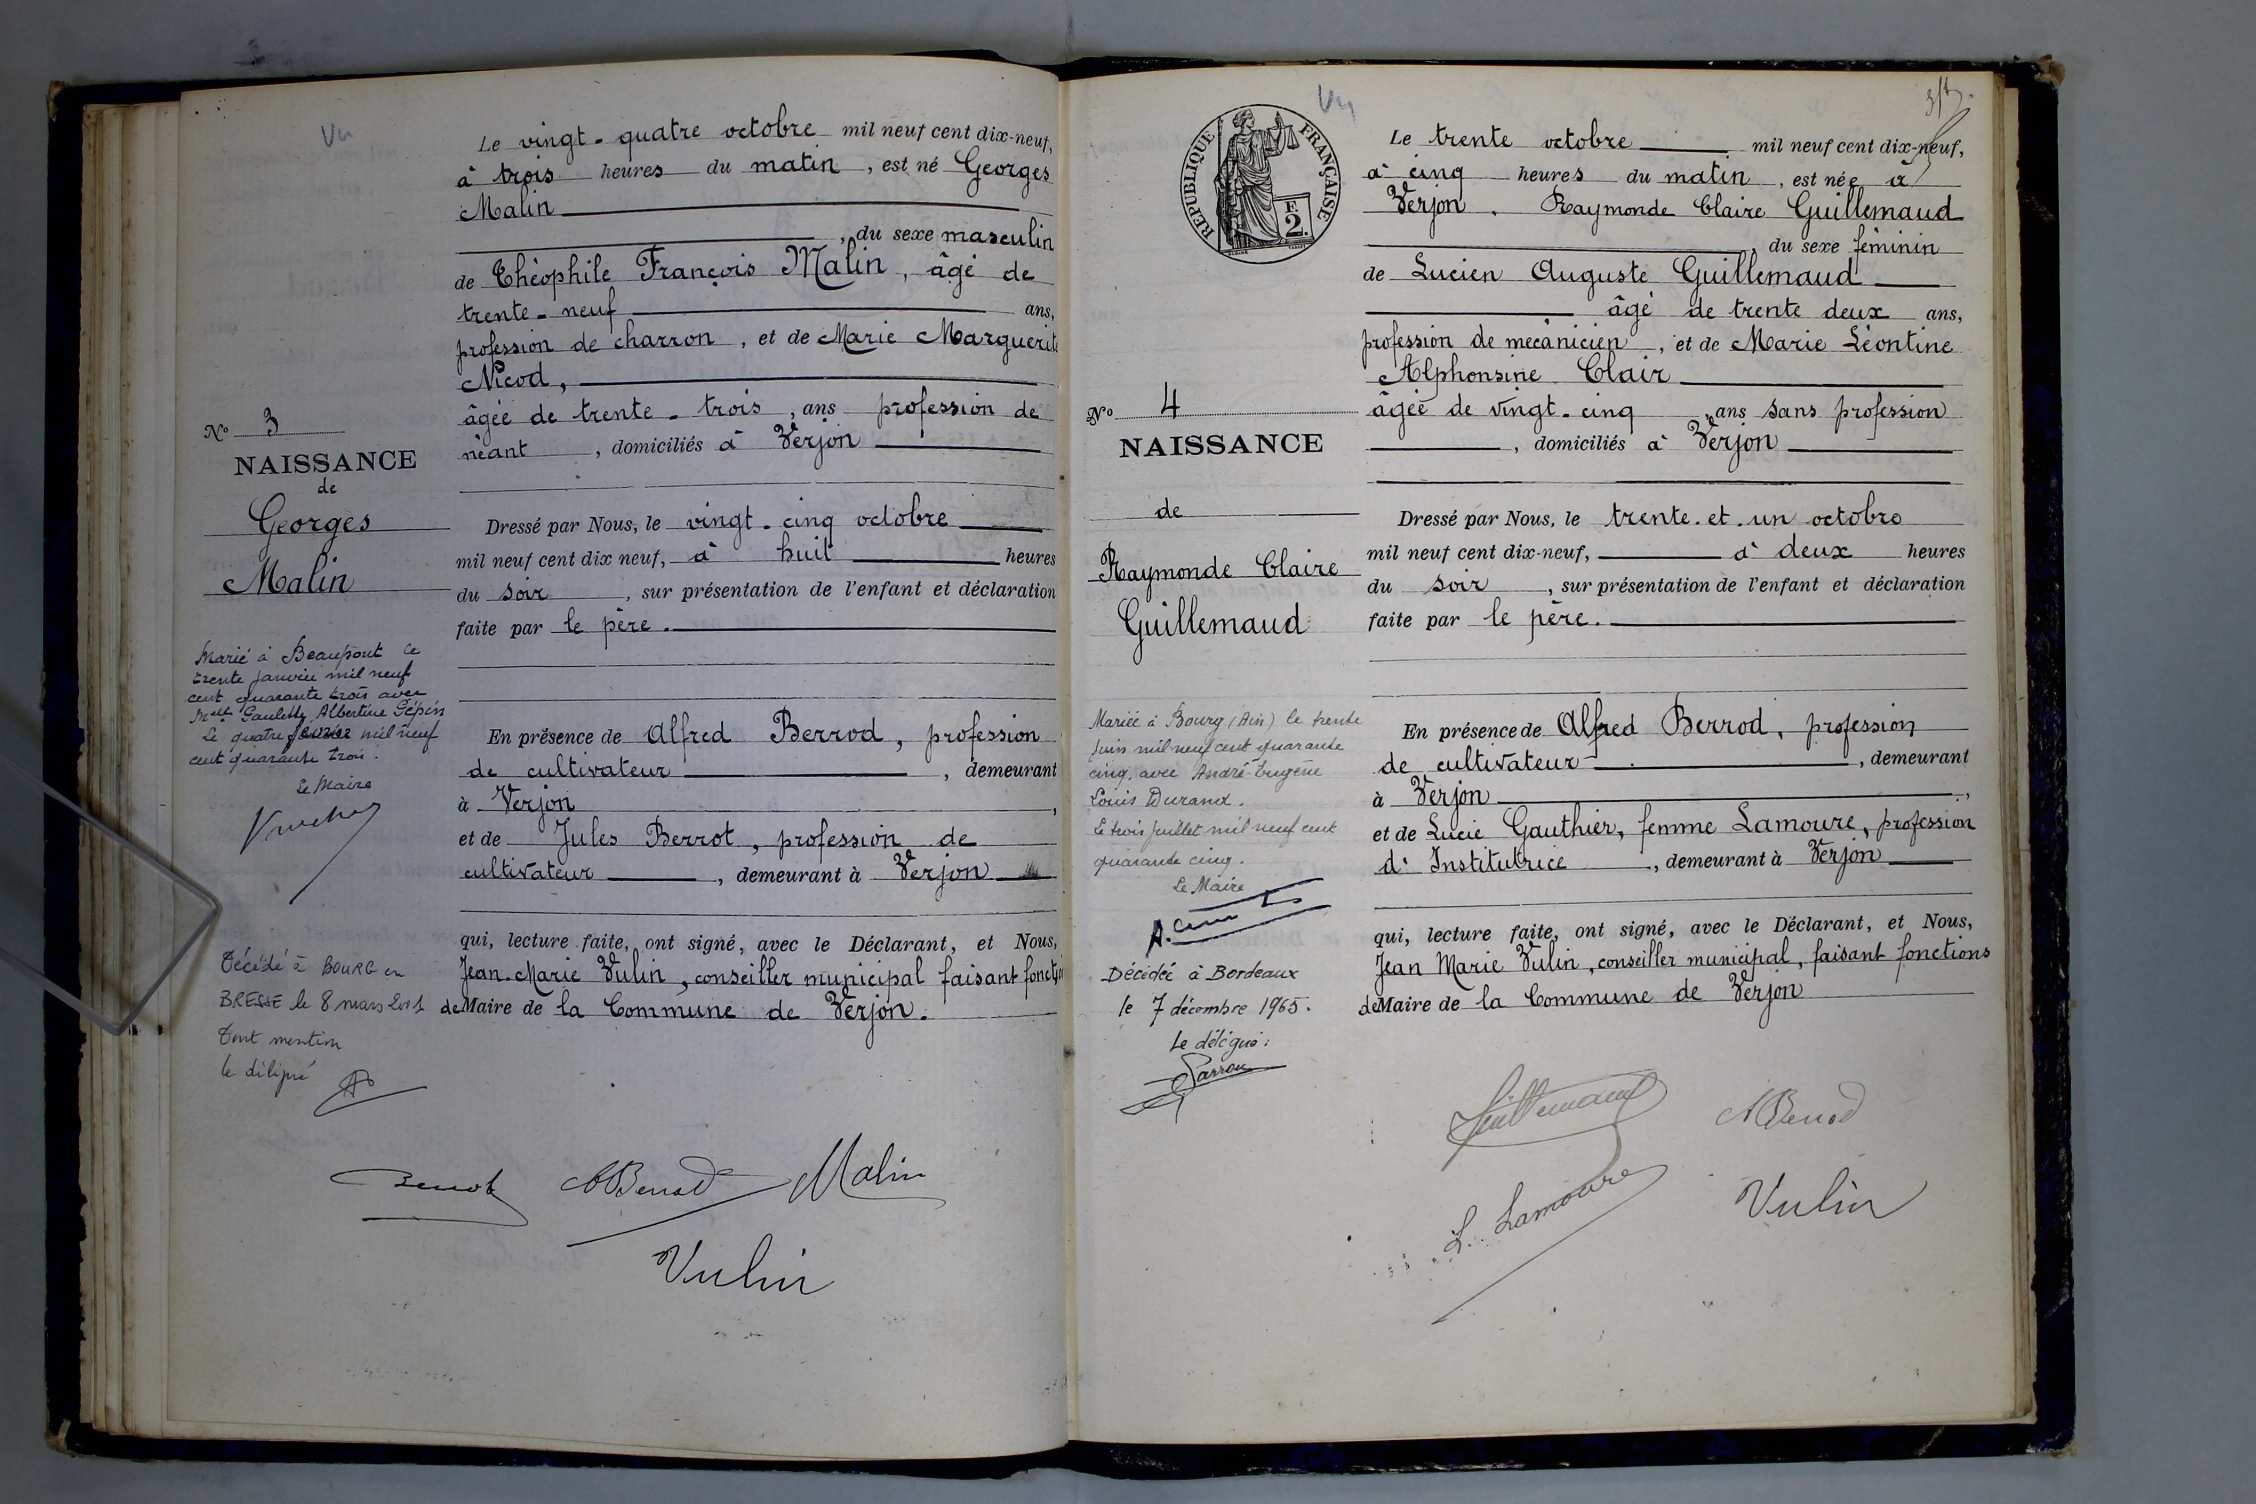 Vu
Le vingt-quatre octobre mil neuf cent dix-neuf,
à trois heures du matin, est né Georges
Malin
, du sexe masculin
de Théophile François Malin, âgé de
trente-neuf ans,
profession de charron, et de Marie Marguerite
Nicod,
âgée de trente-trois, ans profession de
néant, domiciliés à Verjon
Nº 3
NAISSANCE
de
Georges
Malin
Dressé par Nous, le vingt-cinq octobre
mil neuf cent dix neuf, à huit heures
du soir, sur présentation de l'enfant et déclaration
faite par le père.
Marié à Beaupont le
trente janvier mil neuf
cent quarante trois avec
Melle Albertine
Le quatre février mil neuf
cent quarante trois.
Le Maire
En présence de Alfred Berrod, profession
de cultivateur, demeurant
à Verjon,
et de Jules Berrot, profession de
cultivateur, demeurant à Verjon
qui, lecture faite, ont signé, avec le Déclarant, et Nous,
Jean-Marie Vulin, conseiller municipal faisant
de Maire de la Commune de Verjon.
Décédé à BOURG en
BRESSE le 8 mars
Dont mention
le délégué
Berrot ABerrod Malin
Vulin
Vu
RÉPUBLIQUE FRANÇAISE
F.
2.
Le trente octobre mil neuf cent dix-neuf,
à cinq heures du matin, est née à
Verjon. Raymonde Claire Guillemaud
, du sexe féminin
de Lucien Auguste Guillemaud
âgé de trente deux ans,
profession de mécanicien, et de Marie Léontine
Alphonsine Clair
âgée de vingt-cinq, ans sans profession
, domiciliés à Verjon
Nº 4
NAISSANCE
de
Raymonde Claire
Guillemaud
Dressé par Nous, le trente-et-un octobre
mil neuf cent dix-neuf, à deux heures
du soir, sur présentation de l'enfant et déclaration
faite par le père.
Mariée à Bourg (Ain) le trente
juin mil neuf cent quarante
cinq, avec André Eugène
Louis Durand.
Le trois juillet mil neuf cent
quarante cinq.
Le Maire
En présence de Alfred Berrod, profession
de cultivateur, demeurant
à Verjon,
et de Lucie Gauthier, femme Lamoure, profession
d'Institutrice, demeurant à Verjon
qui, lecture faite, ont signé, avec le Déclarant, et Nous,
Jean Marie Vulin, conseiller municipal, faisant fonctions
de Maire de la Commune de Verjon
Décédée à Bordeaux
le 7 décembre 1965.
Le délégué:
Guillemaud ABerrod
L. Lamoure Vulin